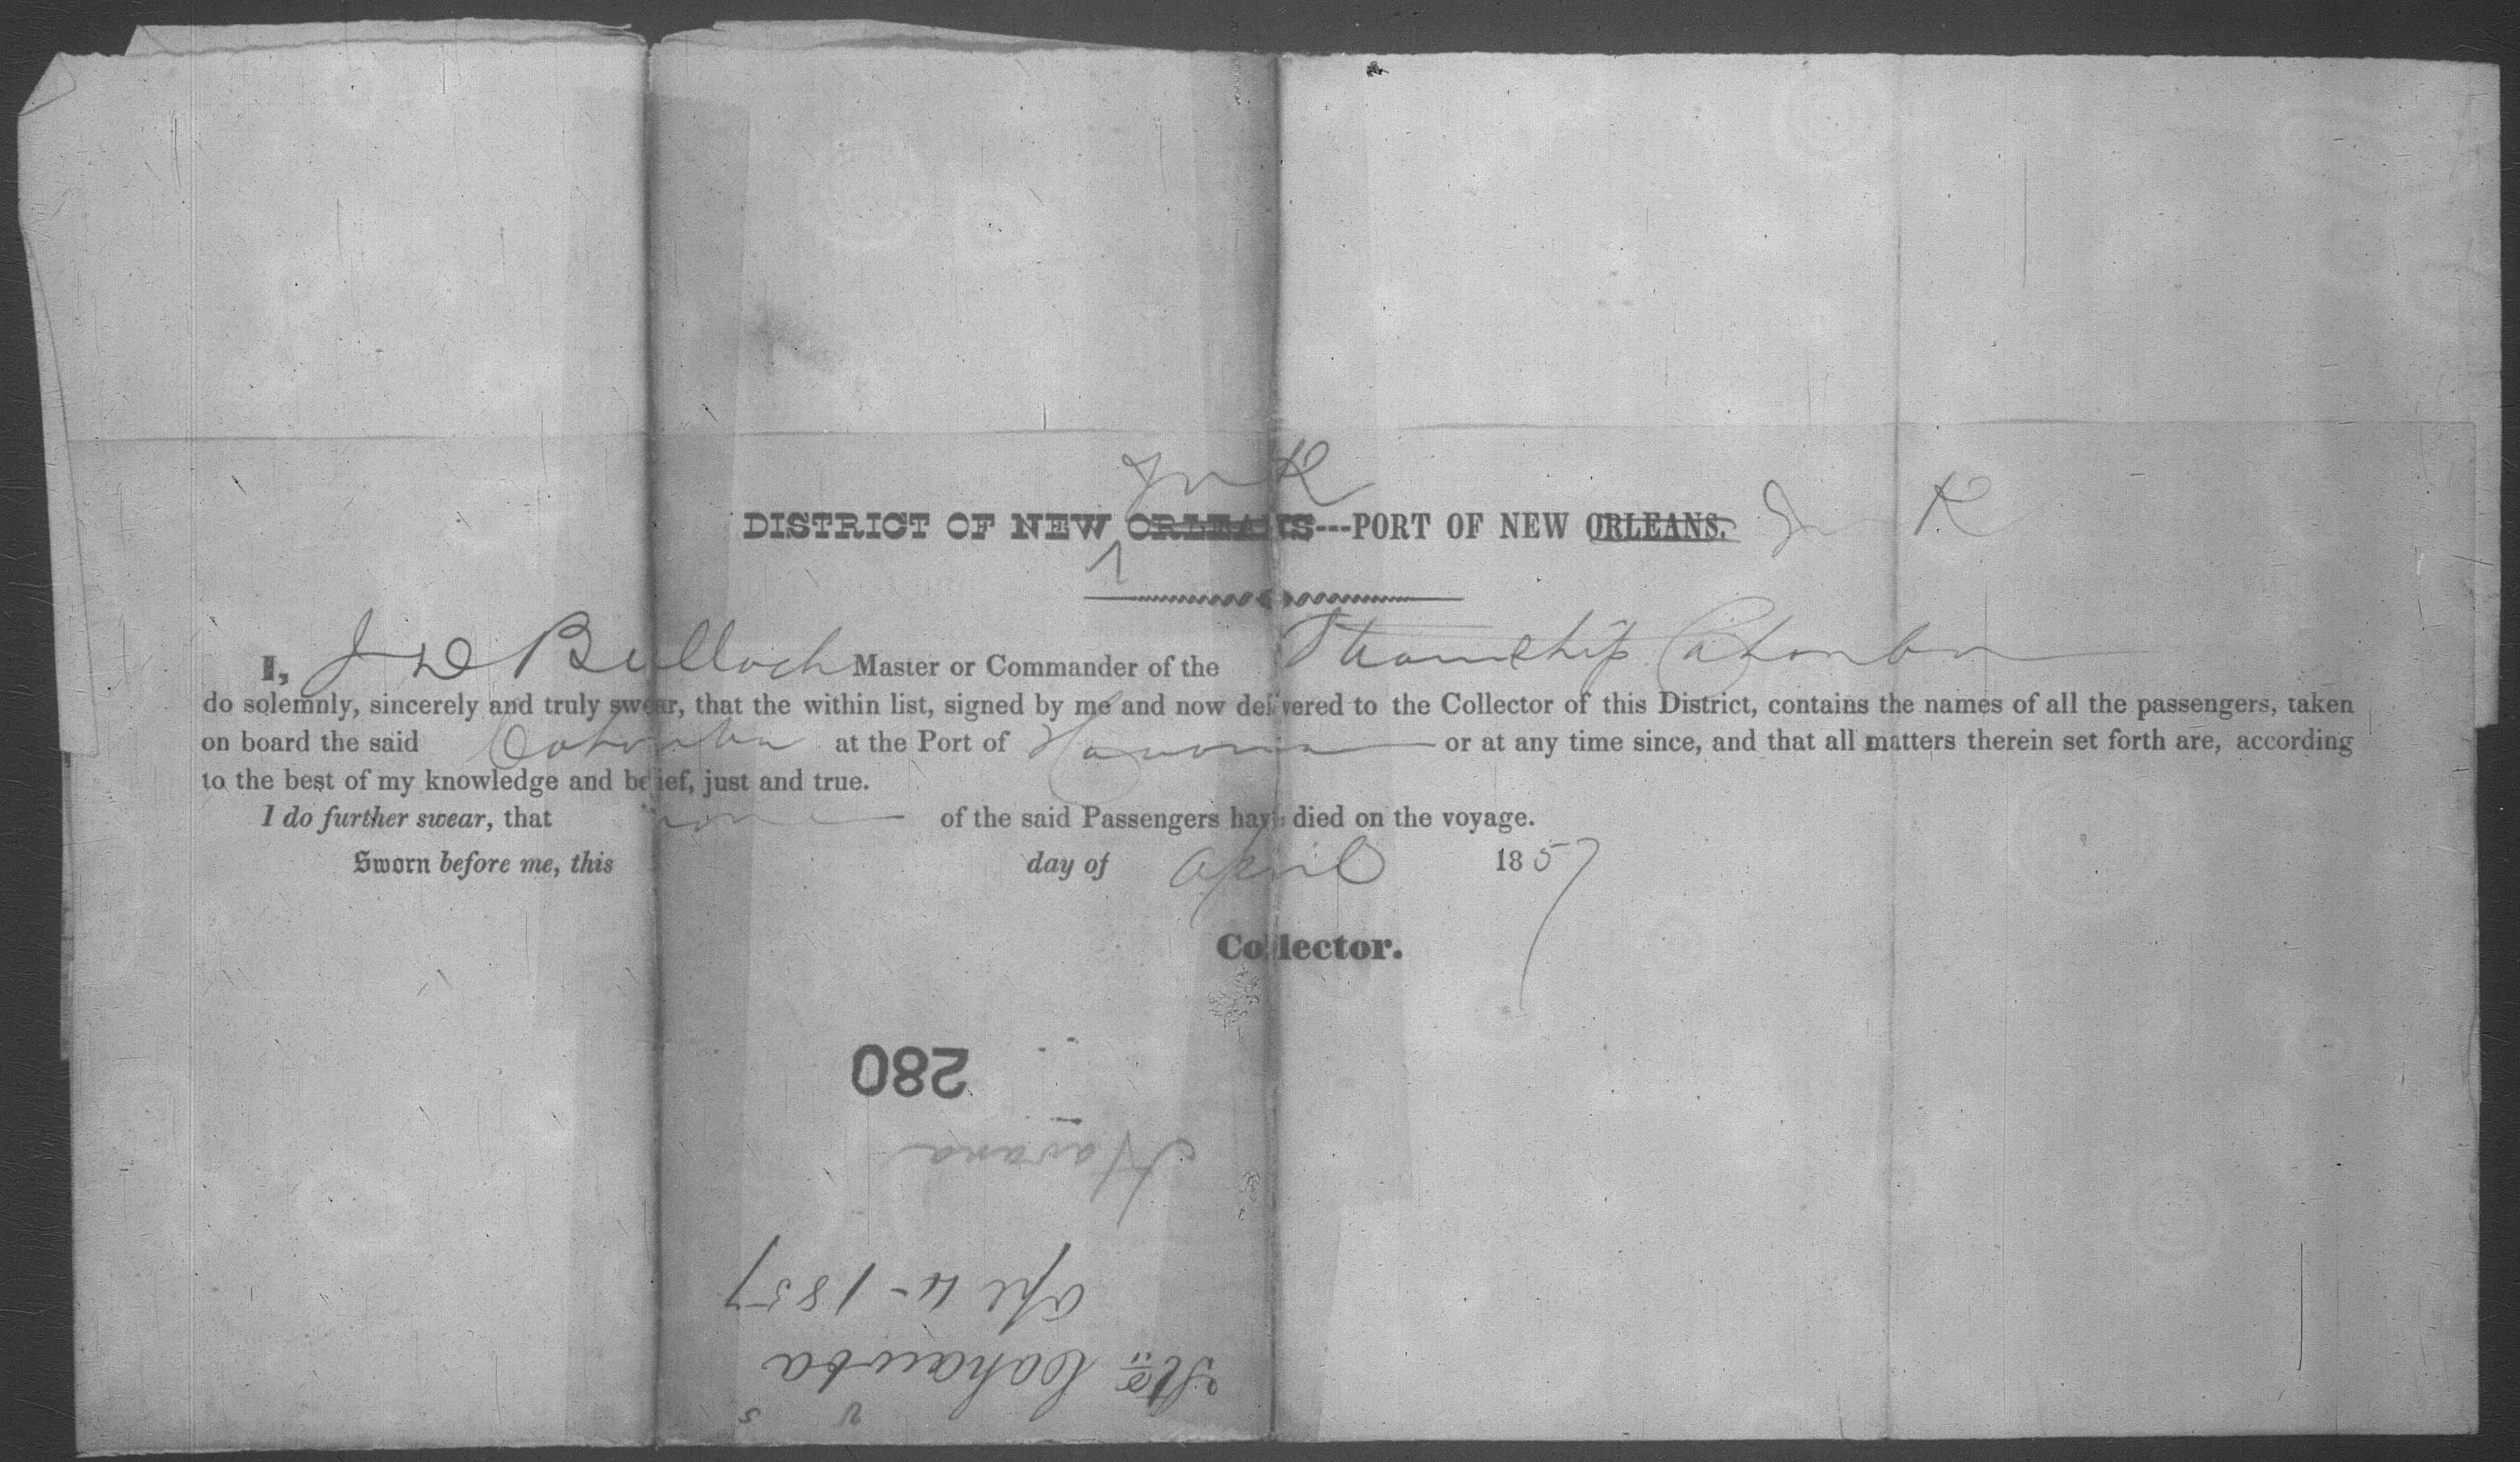 York
DISTRICT OF NEW ORLEANS---PORT OF NEW ORLEANS. York
I, J D Bulloch Master or Commander of the Steamship Cahawba
do solemnly, sincerely and truly swear, that the within list, signed by me and now delivered to the Collector of this District, contains the names of all the passengers, taken
on board the said Cahawba at the Port of Havana or at any time since, and that all matters therein set forth are, according
to the best of my knowledge and belief, just and true.
I do further swear, that none of the said Passengers have died on the voyage.
Sworn before me, this day of April 1857
Collector.
280
Havana
Apl 4-1857
Cahawba